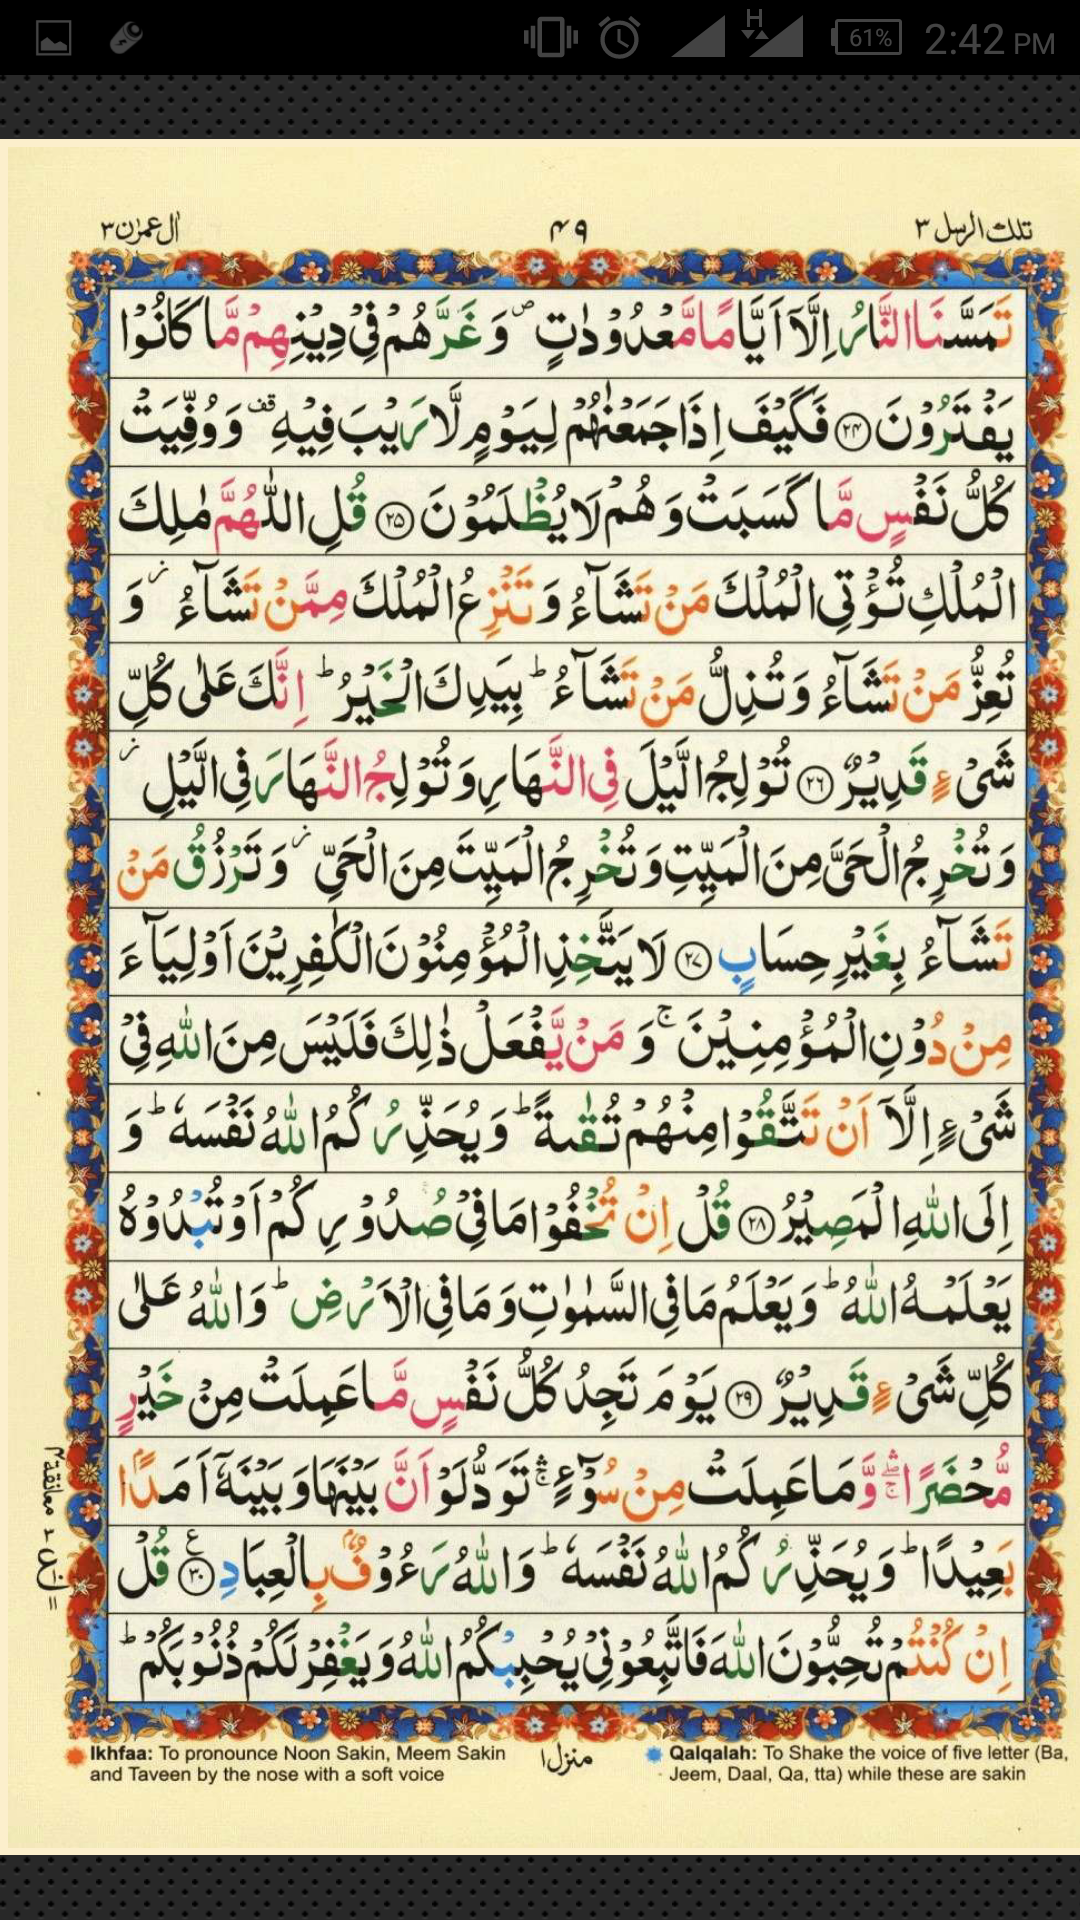 H
61%
2:42 PM
تلك الرسل ٣
٤٩
اٰل عمرٰن ٣
تَمَسَّنَا النَّارُ اِلَّاۤ اَيَّامًا مَّعْدُوْدٰتٍ ۪ وَ غَرَّهُمْ فِيْ دِيْنِهِمْ مَّا كَانُوْا
يَفْتَرُوْنَ ﴿۲۴﴾ فَكَيْفَ اِذَا جَمَعْنٰهُمْ لِيَوْمٍ لَّا رَيْبَ فِيْهِ قف وَ وُفِّيَتْ
كُلُّ نَفْسٍ مَّا كَسَبَتْ وَ هُمْ لَا يُظْلَمُوْنَ ﴿۲۵﴾ قُلِ اللّٰهُمَّ مٰلِكَ
الْمُلْكِ تُؤْتِي الْمُلْكَ مَنْ تَشَآءُ وَ تَنْزِعُ الْمُلْكَ مِمَّنْ تَشَآءُ ؗ وَ
تُعِزُّ مَنْ تَشَآءُ وَ تُذِلُّ مَنْ تَشَآءُ ؕ بِيَدِكَ الْخَيْرُ ؕ اِنَّكَ عَلٰى كُلِّ
شَيْءٍ قَدِيْرٌ ﴿۲۶﴾ تُوْلِجُ الَّيْلَ فِي النَّهَارِ وَ تُوْلِجُ النَّهَارَ فِي الَّيْلِ ؗ
وَ تُخْرِجُ الْحَيَّ مِنَ الْمَيِّتِ وَ تُخْرِجُ الْمَيِّتَ مِنَ الْحَيِّ ؗ وَ تَرْزُقُ مَنْ
تَشَآءُ بِغَيْرِ حِسَابٍ ﴿۲۷﴾ لَا يَتَّخِذِ الْمُؤْمِنُوْنَ الْكٰفِرِيْنَ اَوْلِيَآءَ
مِنْ دُوْنِ الْمُؤْمِنِيْنَ ۚ وَ مَنْ يَّفْعَلْ ذٰلِكَ فَلَيْسَ مِنَ اللّٰهِ فِيْ
شَيْءٍ اِلَّاۤ اَنْ تَتَّقُوْا مِنْهُمْ تُقٰىةً ؕ وَ يُحَذِّرُكُمُ اللّٰهُ نَفْسَهٗ ؕ وَ
اِلَى اللّٰهِ الْمَصِيْرُ ﴿۲۸﴾ قُلْ اِنْ تُخْفُوْا مَا فِيْ صُدُوْرِكُمْ اَوْ تُبْدُوْهُ
يَعْلَمْهُ اللّٰهُ ؕ وَ يَعْلَمُ مَا فِي السَّمٰوٰتِ وَ مَا فِي الْاَرْضِ ؕ وَ اللّٰهُ عَلٰى
كُلِّ شَيْءٍ قَدِيْرٌ ﴿۲۹﴾ يَوْمَ تَجِدُ كُلُّ نَفْسٍ مَّا عَمِلَتْ مِنْ خَيْرٍ
مُّحْضَرًا ۛۖۚ وَّ مَا عَمِلَتْ مِنْ سُوْٓءٍ ۛۚ تَوَدُّ لَوْ اَنَّ بَيْنَهَا وَ بَيْنَهٗۤ اَمَدًۢا
بَعِيْدًا ؕ وَ يُحَذِّرُكُمُ اللّٰهُ نَفْسَهٗ ؕ وَ اللّٰهُ رَءُوْفٌۢ بِالْعِبَادِ ﴿۳۰﴾ ع قُلْ
اِنْ كُنْتُمْ تُحِبُّوْنَ اللّٰهَ فَاتَّبِعُوْنِيْ يُحْبِبْكُمُ اللّٰهُ وَ يَغْفِرْ لَكُمْ ذُنُوْبَكُمْ ؕ
معانقة ٢
ع
١١
Ikhfaa: To pronounce Noon Sakin, Meem Sakin
and Taveen by the nose with a soft voice
منزل ١
Qalqalah: To Shake the voice of five letter (Ba,
Jeem, Daal, Qa, tta) while these are sakin